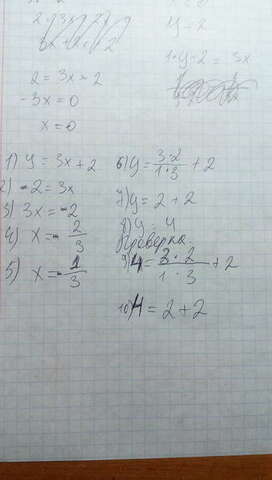 2 = 3x + 2
-3x = 0
x = 0
y - 2
1 + y - 2 = 3x
1) y = 3x + 2
2) -2 = 3x
3) 3x = -2
4) x = - 2/3
5) x = - 1/3
6) y = 3·2/1·3 + 2
7) y = 2 + 2
8) y 4
Проверка
9) 4 = 3·2/1·3 + 2
10) 4 = 2 + 2